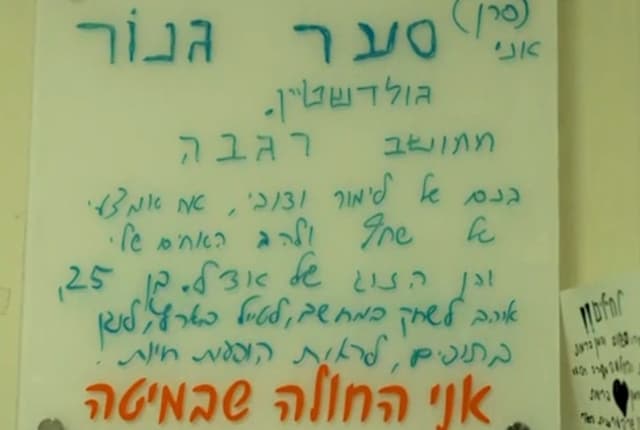 (סרן)
אני סער גנור
גולדשטיין.
ממושב רגבה
בנם של לימור וצוקי, אח אמצעי
של שחף ולהב האחים שלי
ובן הזוג של אוצ'ל. בן 25,
אוהב לשחק במחשב, לטייל בארץ, לנגן
בתופים, לראות הופעות חיות.
אני החולה שבמיטה
לחלום!!